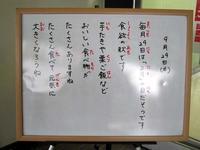 9月29日(金)
毎月29日は
食欲の秋です
芋たきや栗ご飯など
おいしい食べ物が
たくさんありますね
たくさん食べて元気に
大きくなろうね